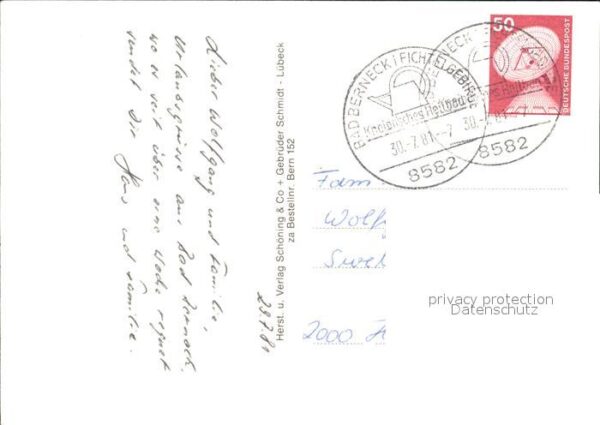 Lieber Wolfgang und Familie,
Urlaubsgrüsse aus Bad Berneck,
wo es seit über eine Woche regnet
sendet Dir Hans und Familie.
29.7.81
Herst. u. Verlag Schöning & Co + Gebrüder Schmidt - Lübeck
za Bestellnr. Bern 152
BAD BERNECK I FICHTELGEBIRGE
Kneippsches Heilbad
30.-7.81.-7
8582
BERNECK
Heilbad
30.-7.81.-7
8582
50
DEUTSCHE BUNDESPOST
Fam.
Wolf
2000 H
privacy protection
Datenschutz